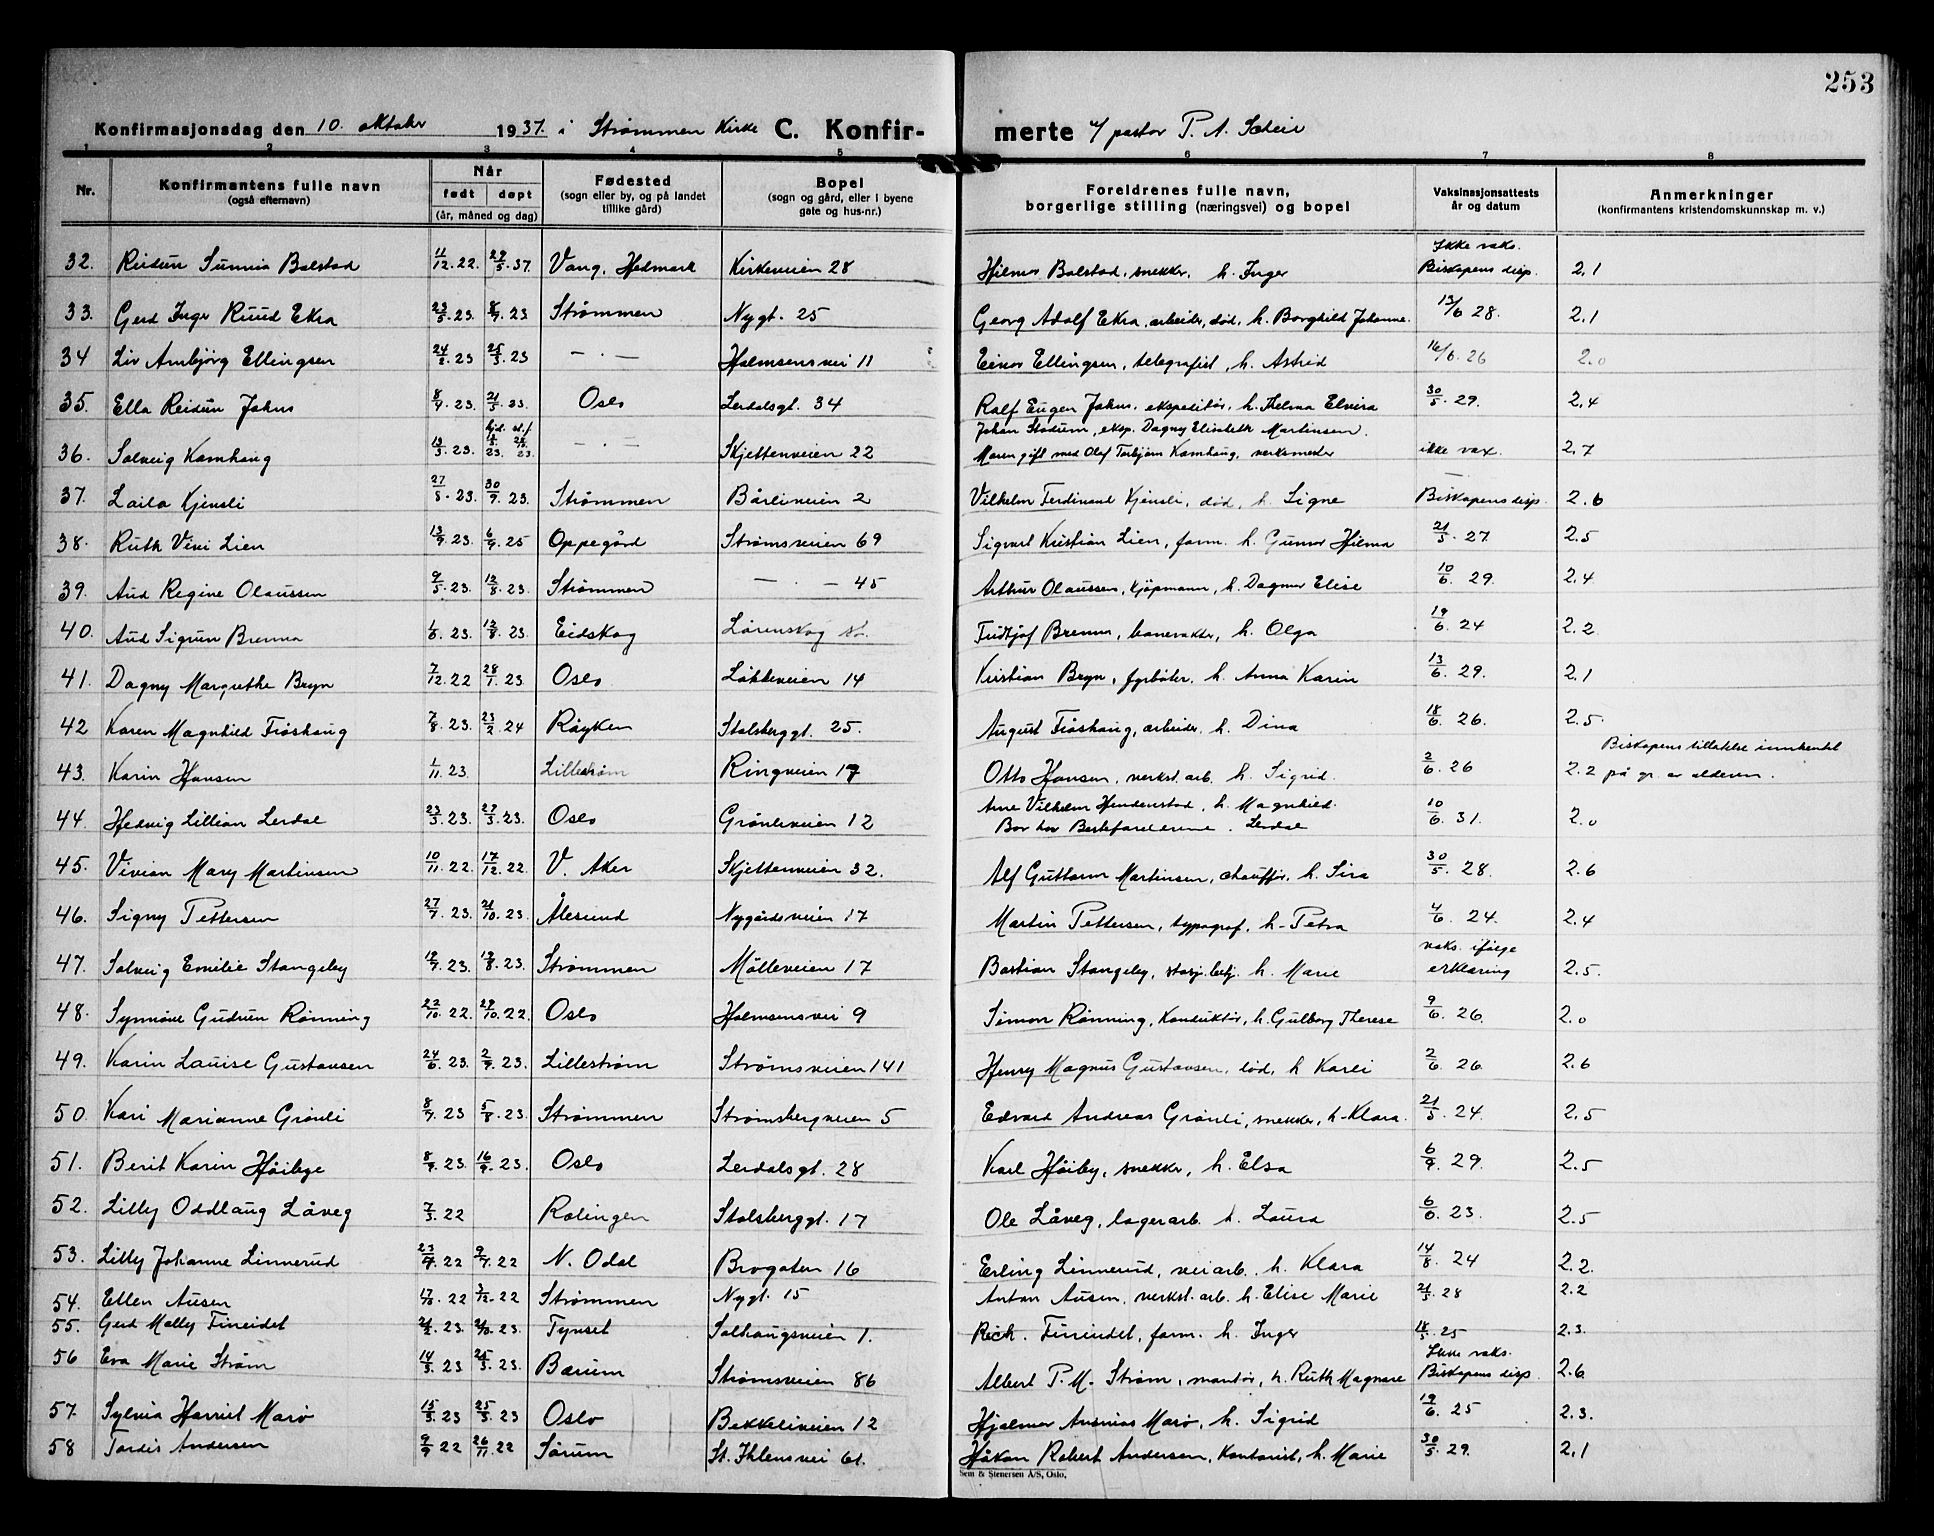 253
Konfirmasjonsdag den 10. oktober 1937. i Strømmen Kirke C. Konfirmerte v/ pastor P. A.
1 2 3 4 5 6 7 8
Nr. Konfirmantens fulle navn (også efternavn) Når født døpt (år, måned og dag) Fødested (sogn eller by, og på landet tillike gård) Bopel (sogn og gård, eller i byene gate og hus-nr.) Foreldrenes fulle navn, borgerlige stilling (næringsvei) og bopel Vaksinasjonsattests år og datum Anmerkninger (konfirmantens kristendomskunnskap m. v.)
32. Reidun Sunniva Bolstad 11/12.22. 29/5.37. Vang, Hedmark Kirkeveien 28 Hilmar Bolstad, snekker, h. Inger Ikke vaks. Biskopens disp. 2,1
33. Gerd Inger Ruud Ekra 23/5.23. 8/7.23 Strømmen Nygt. 25 Georg Adolf Ekra, arbeider, död, h. Borghild Johanne. 13/6 28. 2,1
34 Liv Arnbjørg Ellingsen 24/2.23 25/3.23 — . — Holmsensvei 11 Einar Ellingsen, telegrafist, h. Astrid 16/6.26 2.0
35. Ella Reidun Johns 8/4.23. 21/5.23. Oslo Lerdalsgt. 34 Ralf Eugen Johns, ekspeditör, h. Thelma Elvira 30/5.29. 2,4
36. Solveig Kamhaug 13/3.23. 23. 23. — . — Skjettenveien 22 Johan Stadum, eksp. Dagny Elisabeth Martinsen. Moren gift med Olaf Torbjørn Kamhaug, verksmester ikke vax. 2,7
37. Laila Kjensli 27/8.23. 30/9.23. Strømmen Bårliveien 2 Vilhelm Ferdinand Kjensli, död, h. Signe — Biskopens disp. 2.6
38. Ruth Vivi Lien 13/9.23. 6/9.25 Oppegård Strømsveien 69 Sigvart Kristian Lien, form. h. Gunvor Hilma 21/5.27. 2.5
39. Aud Regine Olaussen 9/5.23. 12/8.23. Strømmen — . — 45 Arthur Olaussen, kjøpmann, h. Dagmar Elise 10/6.29. 2.4
40. Aud Sigrun Brenna 1/6.23. 12/8.23. Eidskog Lørenskog st. Fridtjof Brenna, banevokter, h. Olga 19/6.24 2.2
41. Dagny Margrethe Bryn 7/12.22 28/1.23. Oslo Løkkeveien 14 Kristian Bryn, fyrböter, h. Anna Karin 13/6.29. 2,1
42 Karen Magnhild Fröshaug 7/8.23. 23/2.24 Røyken Stalsberggt. 25. August Fröshaug, arbeider, h. Dina 18/6.26. 2.5.
43. Karin Hansen 1/11.23 Lillestrøm Ringveien 17 Otto Hansen, verkst.arb. h. Sigrid. 2/6.26 Biskopens tillatelse innhentet 2.2 på gr. av alderen.
44. Hedvig Lillian Lerdal 23/3.23. 29/3.23. Oslo Grønliveien 12 Arne Vilhelm Hendenstad, h. Magnhild. Bor hos Besteforeldrene. Lerdal 10/6.31. 2.0
45. Vivian Mary Martinsen 10/11.22. 17/12.22. V. Aker Skjettenveien 32. Alf Guttorm Martinsen, chauffør, h. Sira 30/5.28. 2.6
46. Signy Pettersen 27/7.23. 21/10.23. Ålesund Nygårdsveien 17 Martin Pettersen, typograf, h. Petra 4/6.24. 2.4
47. Solveig Emilie Stangeby 12/7.23. 19/8.23. Strømmen Mölleveien 17 Bastian Stangeby, stasj.betj. h. Marie vaks. ifølge erklæring 2.5.
48. Synnöve Gudrun Rönning 22/10.22. 29/10.22. Oslo Holmsensvei 9 Simon Rönning, Konduktör, h. Gulborg Therese 9/6.26. 2.0
49. Karin Lauise Gustavsen 24/6.23. 2/9.23. Lillestrøm Strømsveien 141 Henry Magnus Gustavsen, död, h Karli 2/6.26. 2.6
50. Kari Marianne Grönli 8/7.23 5/8.23. Strømmen Strømsbergveien 5 Edvard Andreas Grönli, snekker, h. Klara. 21/5.24. 2.5
51. Berit Karin Höibye 8/9.23. 16/9.23. Oslo Lerdalsgt. 28 Karl Höiby, snekker, h. Elsa 6/9.29. 2.5
52. Lilly Oddlaug Låveg 7/3.22 Rælingen Stalsberggt. 17 Ole Låveg, lagerarb. h. Laura 6/6.23. 2.5
53. Lilly Johanne Linnerud 23/4.22 9/7.22 N. Odal Brogaten 16 Erling Linnerud, veiarb. h. Klara 14/8.24 2.2.
54. Ellen Ausen 17/10.22 3/12.22 Strømmen Nygt. 15 Anton Ausen, verkst.arb. h. Elise Marie 21/5.28 2.2
55. Gerd Molly Fineidet 21/2.23. 21/10.23. Tynset Solhaugsveien 1. Rich. Fineidet, form. h. Inger 18/5.25 2.3.
56 Eva Marie Strøm 14/3.23 25/3.23. Bærum Strømsveien 86 Albert P. M. Strøm, montør, h. Ruth Magnare Ikke vaks. Biskopens disp. 2.6
57. Sylvia Harriet Marö 15/3.23 25/3.23 Oslo Bekkeliveien 12 Hjalmar Ananias Marö, h. Sigrid 19/6.25 2.3.
58 Tordis Andersen 9/9.22 26/11.22 Sørum St. Ihlensvei 61. Håkon Robert Andersen, Kontorist, h. Marie 30/5.29. 2,1
Sem & Stenersen A/S, Oslo.